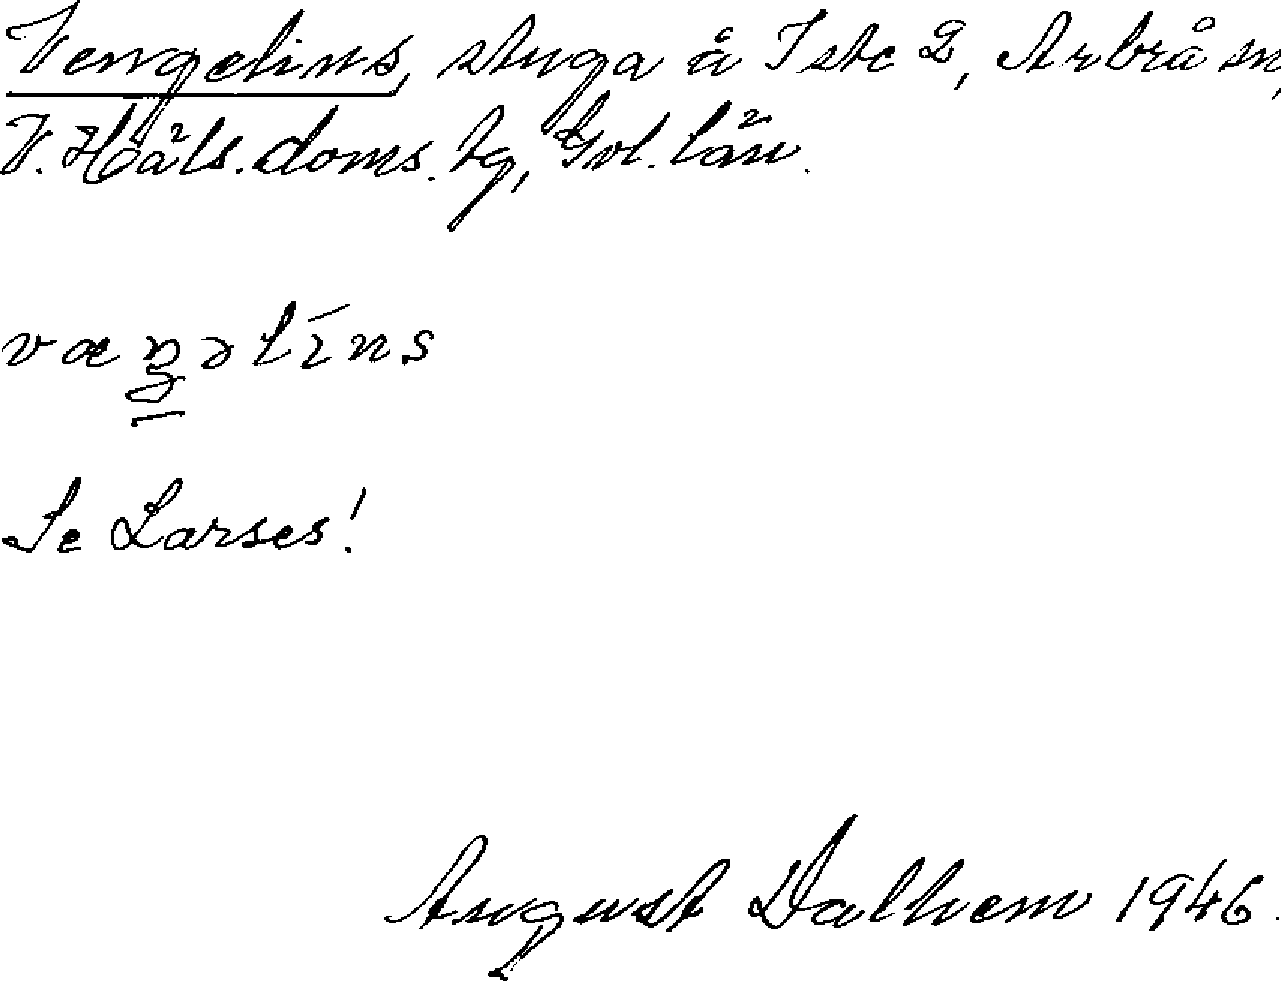 Vengelins, stuga å Iste 2, Arbrå sn,
V. Häls. doms. tg, Gvl. län.
væŋəlíns
Se Larses!
August Dalhem 1946.